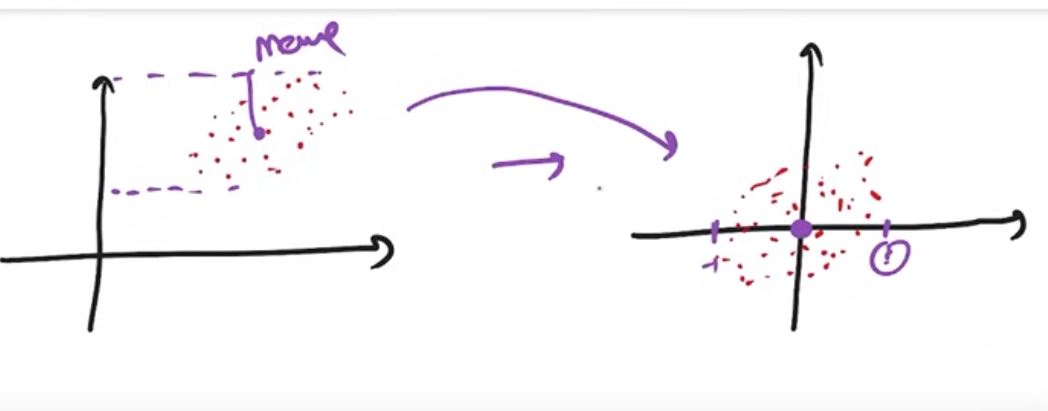 Mean
-1
1